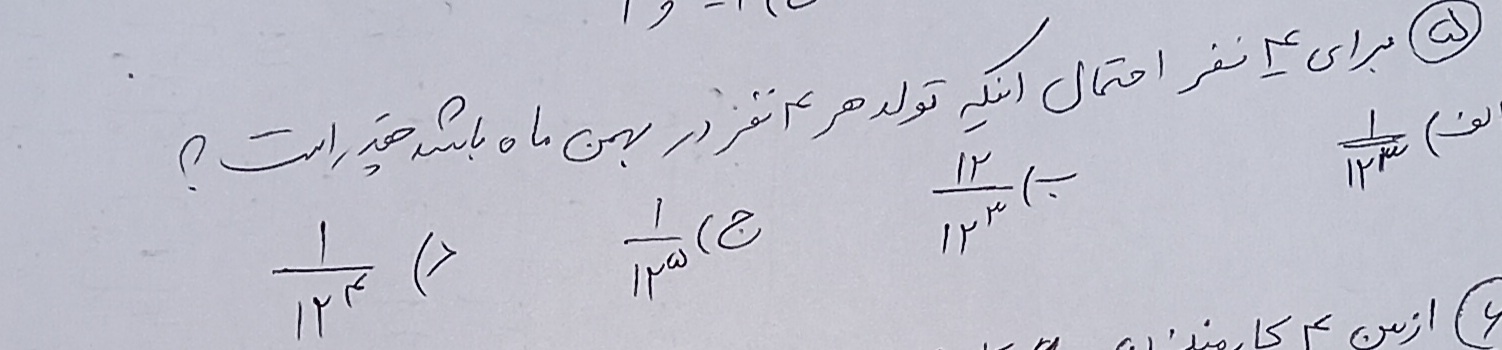 ۵) برای ۴ نفر احتمال اینکه تولد هر ۴ نفر در بهمن ماه باشد چقدر است ؟
الف) ۱/۱۲^۳ ب) ۱۲/۱۲^۳ ج) ۱/۱۲^۵ د) ۱/۱۲^۴
۶) از بین ۴ کارمند